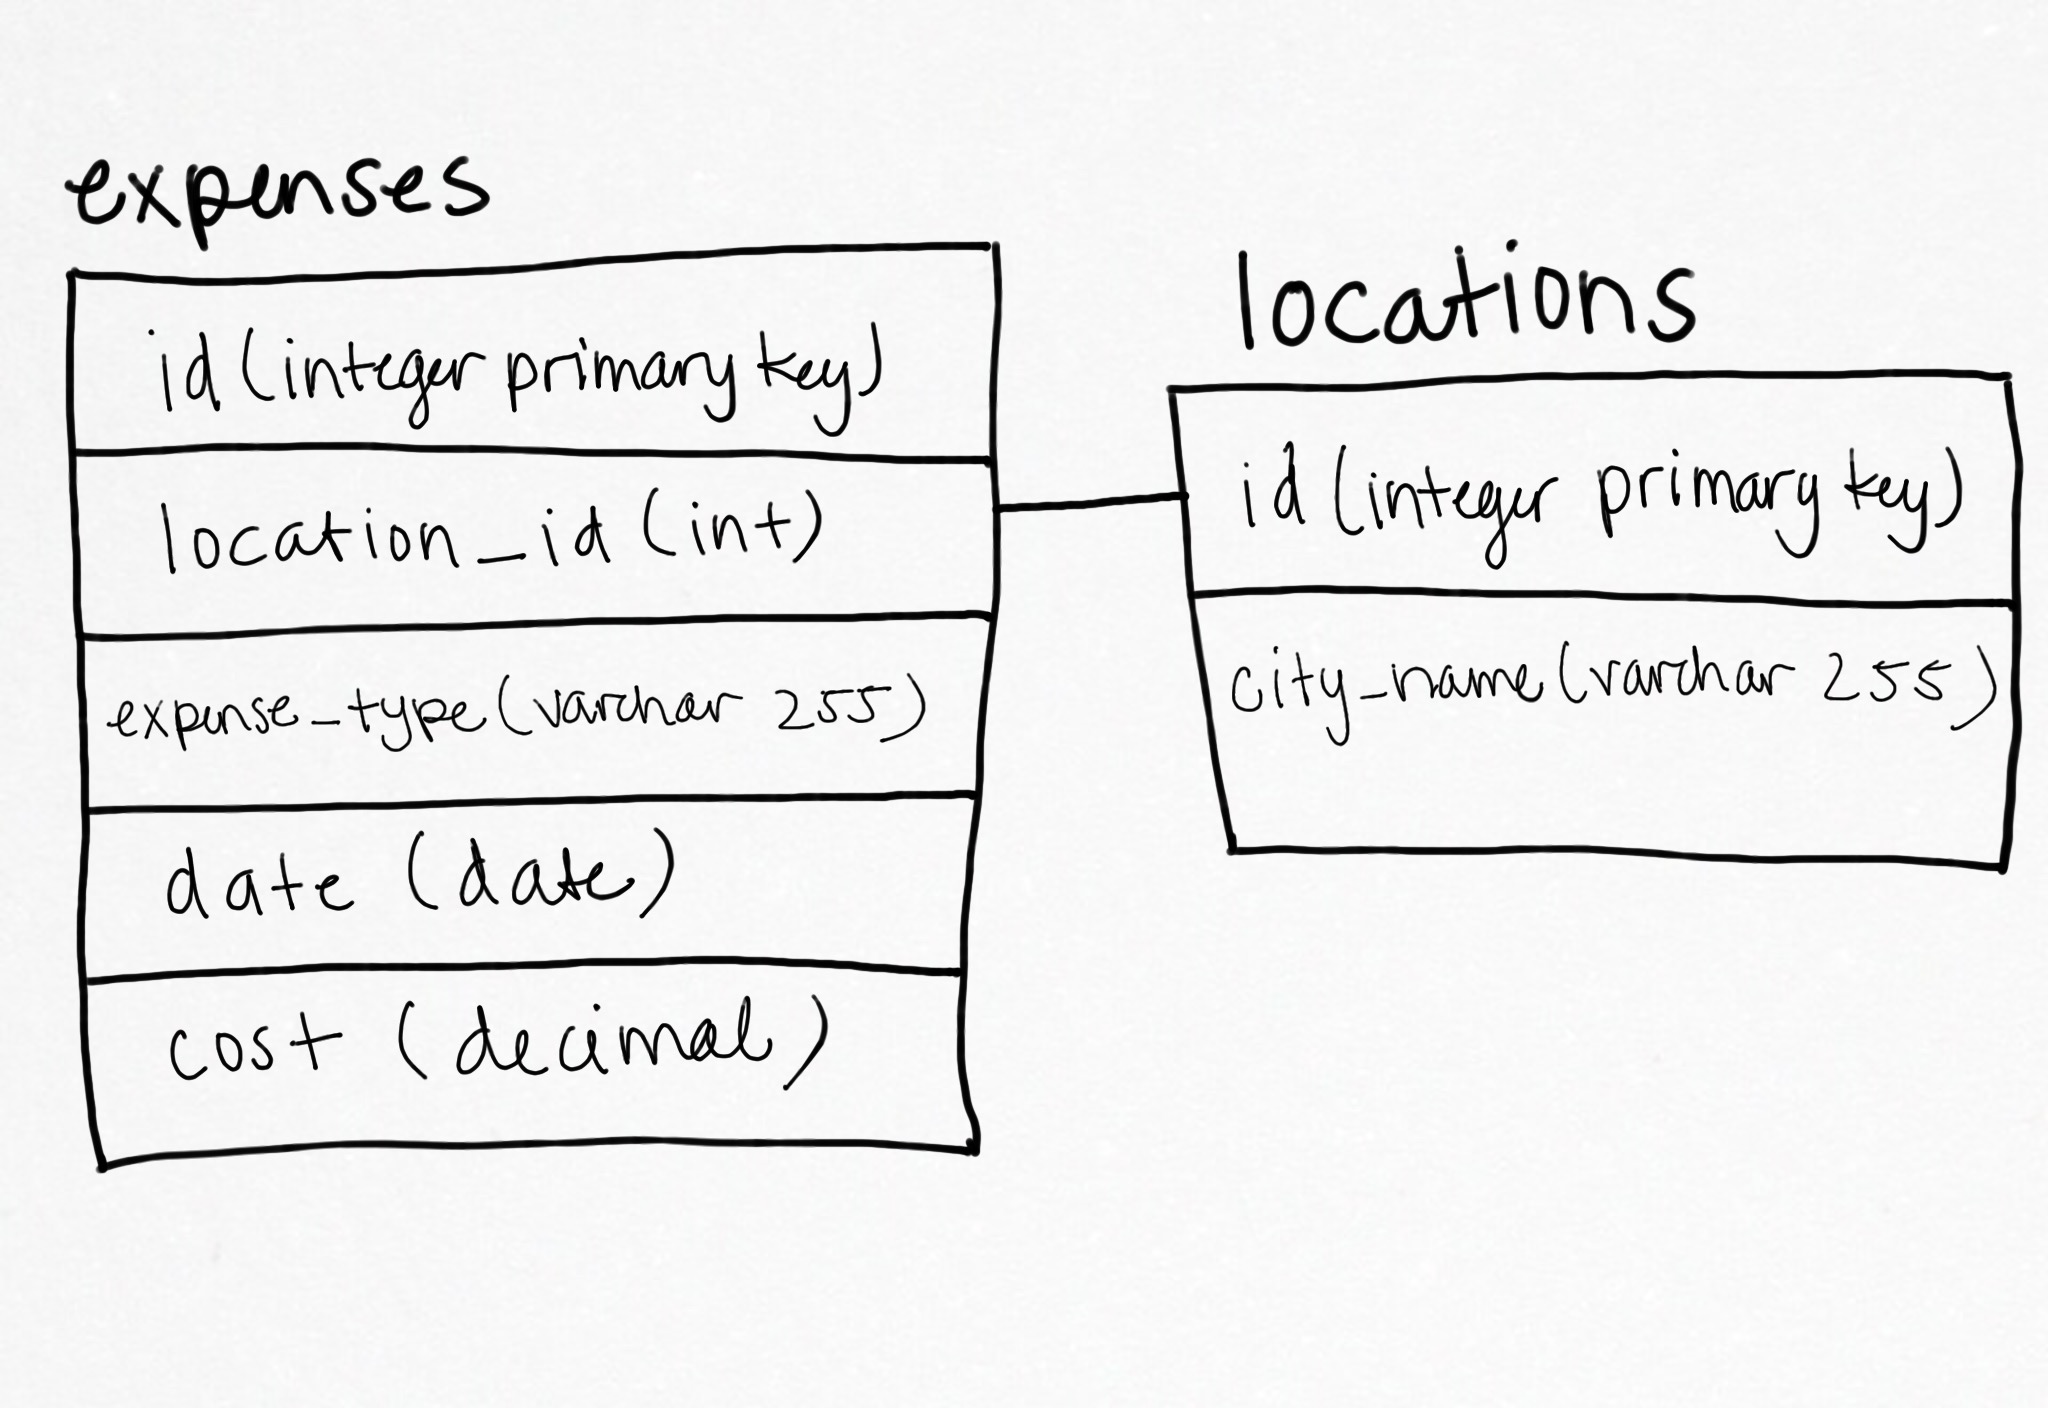 expenses
id (integer primary key)
location_id (int)
expense_type (varchar 255)
date (date)
cost (decimal)
locations
id (integer primary key)
city_name (varchar 255)